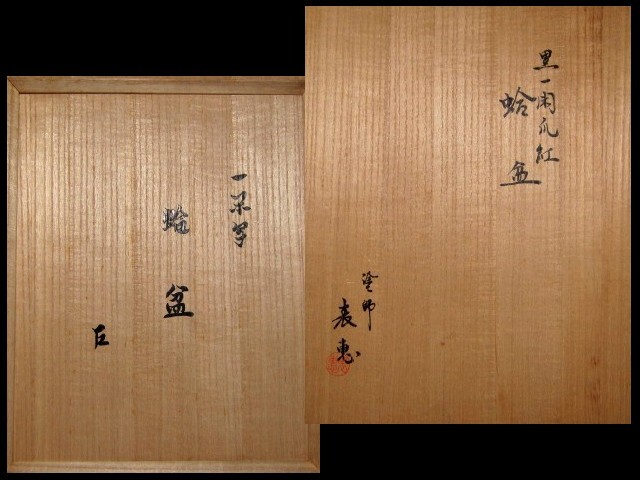 黒一閑爪紅
蛤盆
塗師
表恵
一閑写
蛤盆